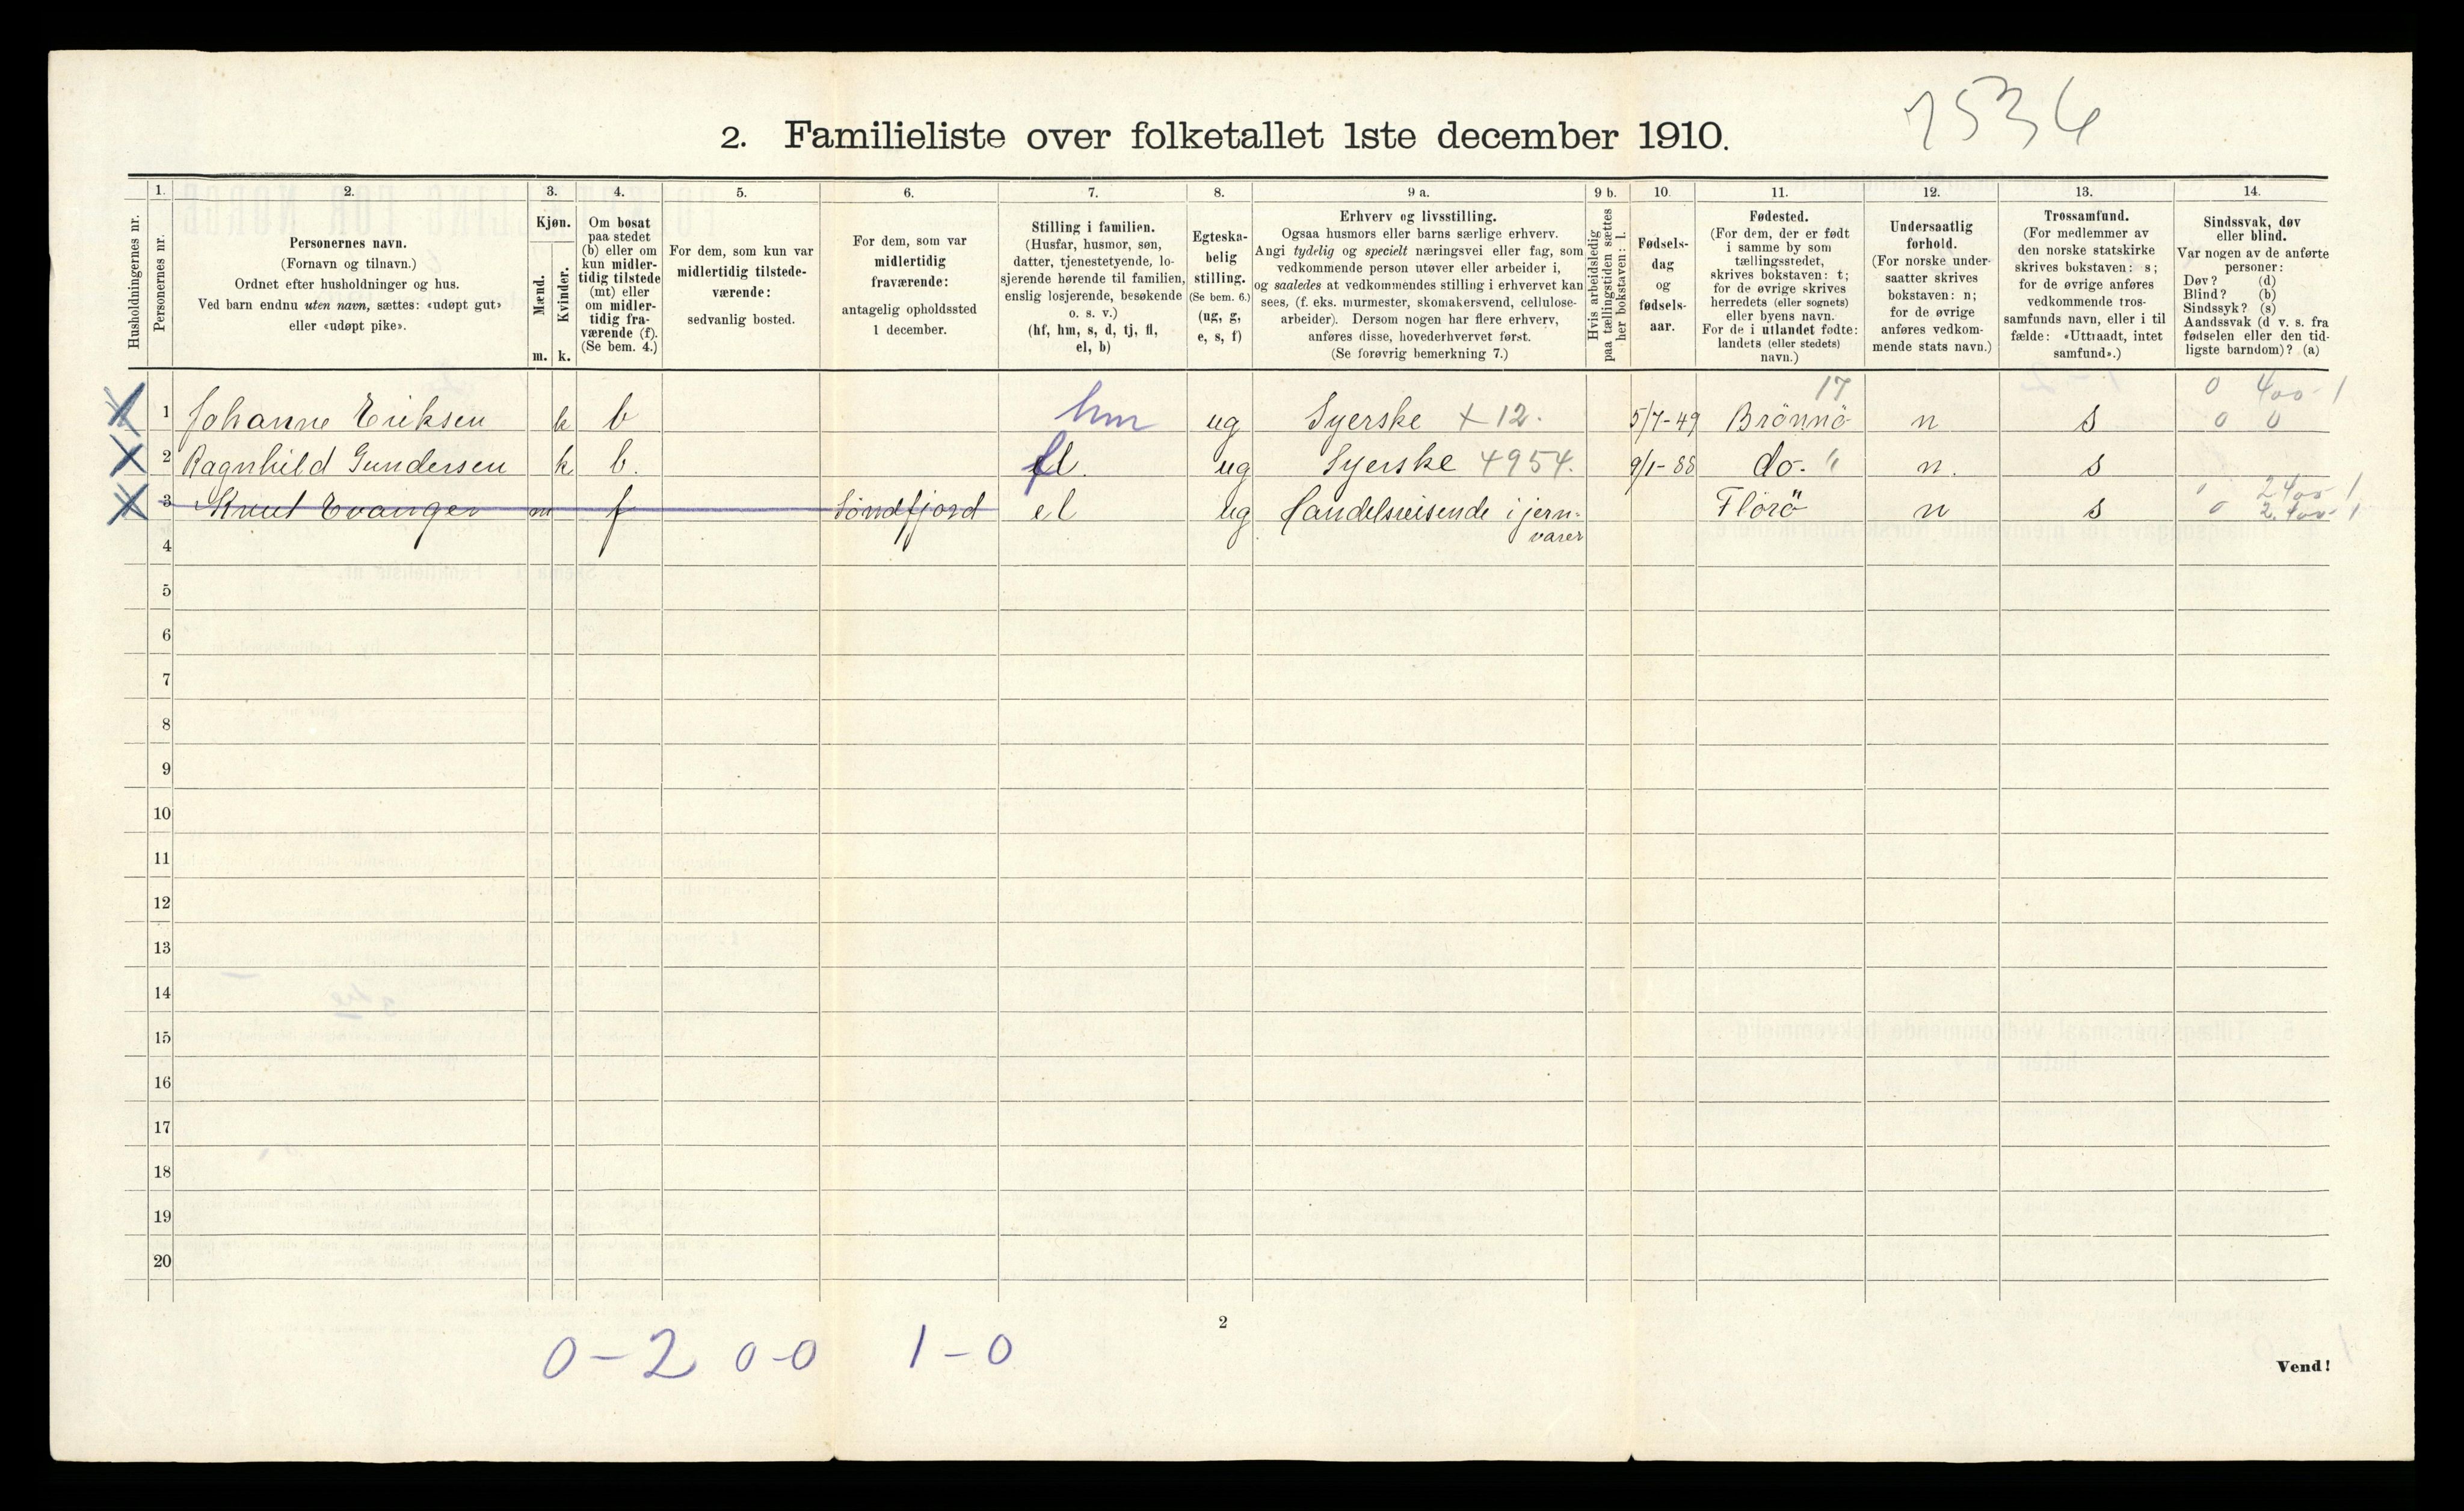 7536
2. Familieliste over folketallet 1ste december 1910.
Husholdningernes nr.
1.
Personernes nr.
2.
Personernes navn.
(Fornavn og tilnavn.)
Ordnet efter husholdninger og hus.
Ved barn endnu uten navn, sættes: «udøpt gut»
eller «udøpt pike».
3.
Kjøn.
Mænd.
Kvinder.
m. k.
4.
Om bosat
paa stedet
(b) eller om
kun midler-
tidig tilstede
(mt) eller
om midler-
tidig fra-
værende (f).
(Se bem. 4.)
5.
For dem, som kun var
midlertidig tilstede-
værende:
sedvanlig bosted.
6.
For dem, som var
midlertidig
fraværende:
antagelig opholdssted
1 december.
7.
Stilling i familien.
(Husfar, husmor, søn,
datter, tjenestetyende, lo-
sjerende hørende til familien,
enslig losjerende, besøkende
o. s. v.)
(hf, hm, s, d, tj, fl,
el, b)
8.
Egteska-
belig
stilling.
(Se bem. 6.)
(ug, g,
e, s, f)
9 a.
Erhverv og livsstilling.
Ogsaa husmors eller barns særlige erhverv.
Angi tydelig og specielt næringsvei eller fag, som
vedkommende person utøver eller arbeider i,
og saaledes at vedkommendes stilling i erhvervet kan
sees, (f. eks. murmester, skomakersvend, cellulose-
arbeider). Dersom nogen har flere erhverv,
anføres disse, hovederhvervet først.
(Se forøvrig bemerkning 7.)
9 b.
Hvis arbeidsledig
paa tællingstiden sættes
her bokstaven: l.
10.
Fødsels-
dag
og
fødsels-
aar.
11.
Fødested.
(For dem, der er født
i samme by som
tællingsstedet,
skrives bokstaven: t;
for de øvrige skrives
herredets (eller sognets)
eller byens navn.
For de i utlandet fødte:
landets (eller stedets)
navn.)
12.
Undersaatlig
forhold.
(For norske under-
saatter skrives
bokstaven: n;
for de øvrige
anføres vedkom-
mende stats navn.)
13.
Trossamfund.
(For medlemmer av
den norske statskirke
skrives bokstaven: s;
for de øvrige anføres
vedkommende tros-
samfunds navn, eller i til
fælde: «Uttraadt, intet
samfund».)
14.
Sindssvak, døv
eller blind.
Var nogen av de anførte
personer:
Døv? (d)
Blind? (b)
Sindssyk? (s)
Aandssvak (d v. s. fra
fødselen eller den tid-
ligste barndom)? (a)
17 0 400-1
1 Johanne Eriksen k b hm ug Syerske + 12. 5/7-49 Brönnö n s 0 0
2 Ragnhild Gundersen k b. fl. ug Syerske 4954. 9/1-88 do. " n. s
2400 1
3 Knut Evanger m f Söndfjord el ug Handelsreisende i jern- Florö n s 0 2.400-1
varer
4
5
6
7
8
9
10
11
12
13
14
15
16
17
18
19
20
2
0-2 0-0 1-0
Vend!